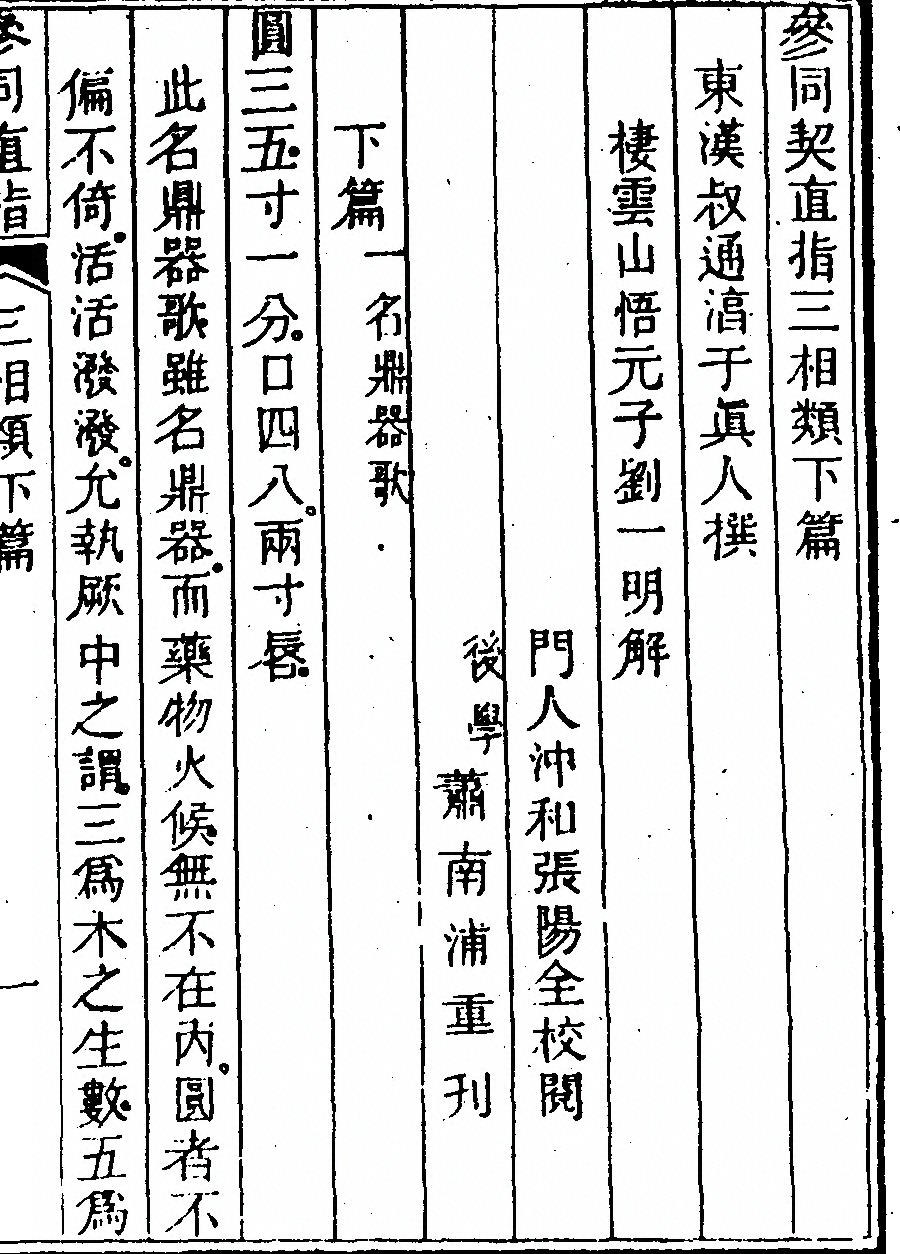 參同契直指三相類下篇
東漢叔通淳于眞人撰
棲雲山悟元子劉一明解
門人沖和張陽全校閱
後學蕭南浦重刊
下篇 一名鼎器歌
圓三五。寸一分。口四八。兩寸唇。
此名鼎器歌。雖名鼎器。而藥物火候。無不在內。圓者不
偏不倚。活活潑潑。允執厥中之謂。三爲木之生數。五爲
參同直指 三相類下篇 一